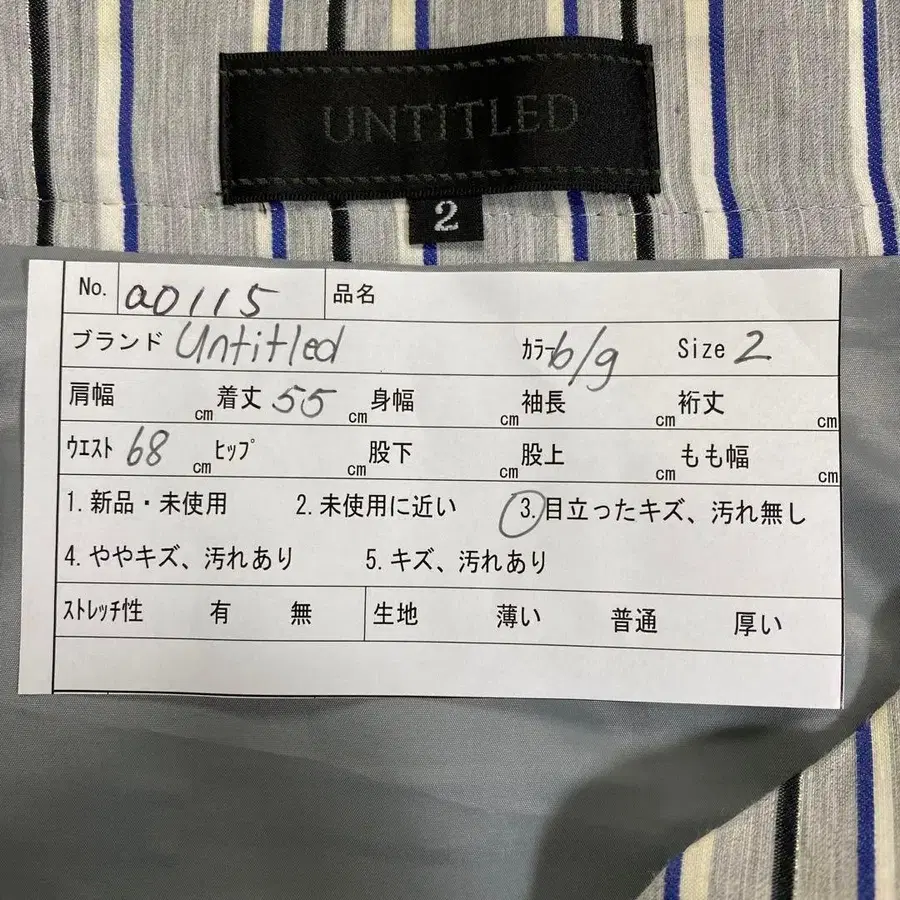 UNTITLED
2
No. a0115 品名
ブランド Untitled カラー b/g Size 2
肩幅 cm 着丈 55 cm 身幅 cm 袖長 cm 裄丈 cm
ウエスト 68 cm ヒップ cm 股下 cm 股上 cm もも幅 cm
1. 新品・未使用 2. 未使用に近い 3. 目立ったキズ、汚れ無し
4. ややキズ、汚れあり 5. キズ、汚れあり
ストレッチ性 有 無 生地 薄い 普通 厚い